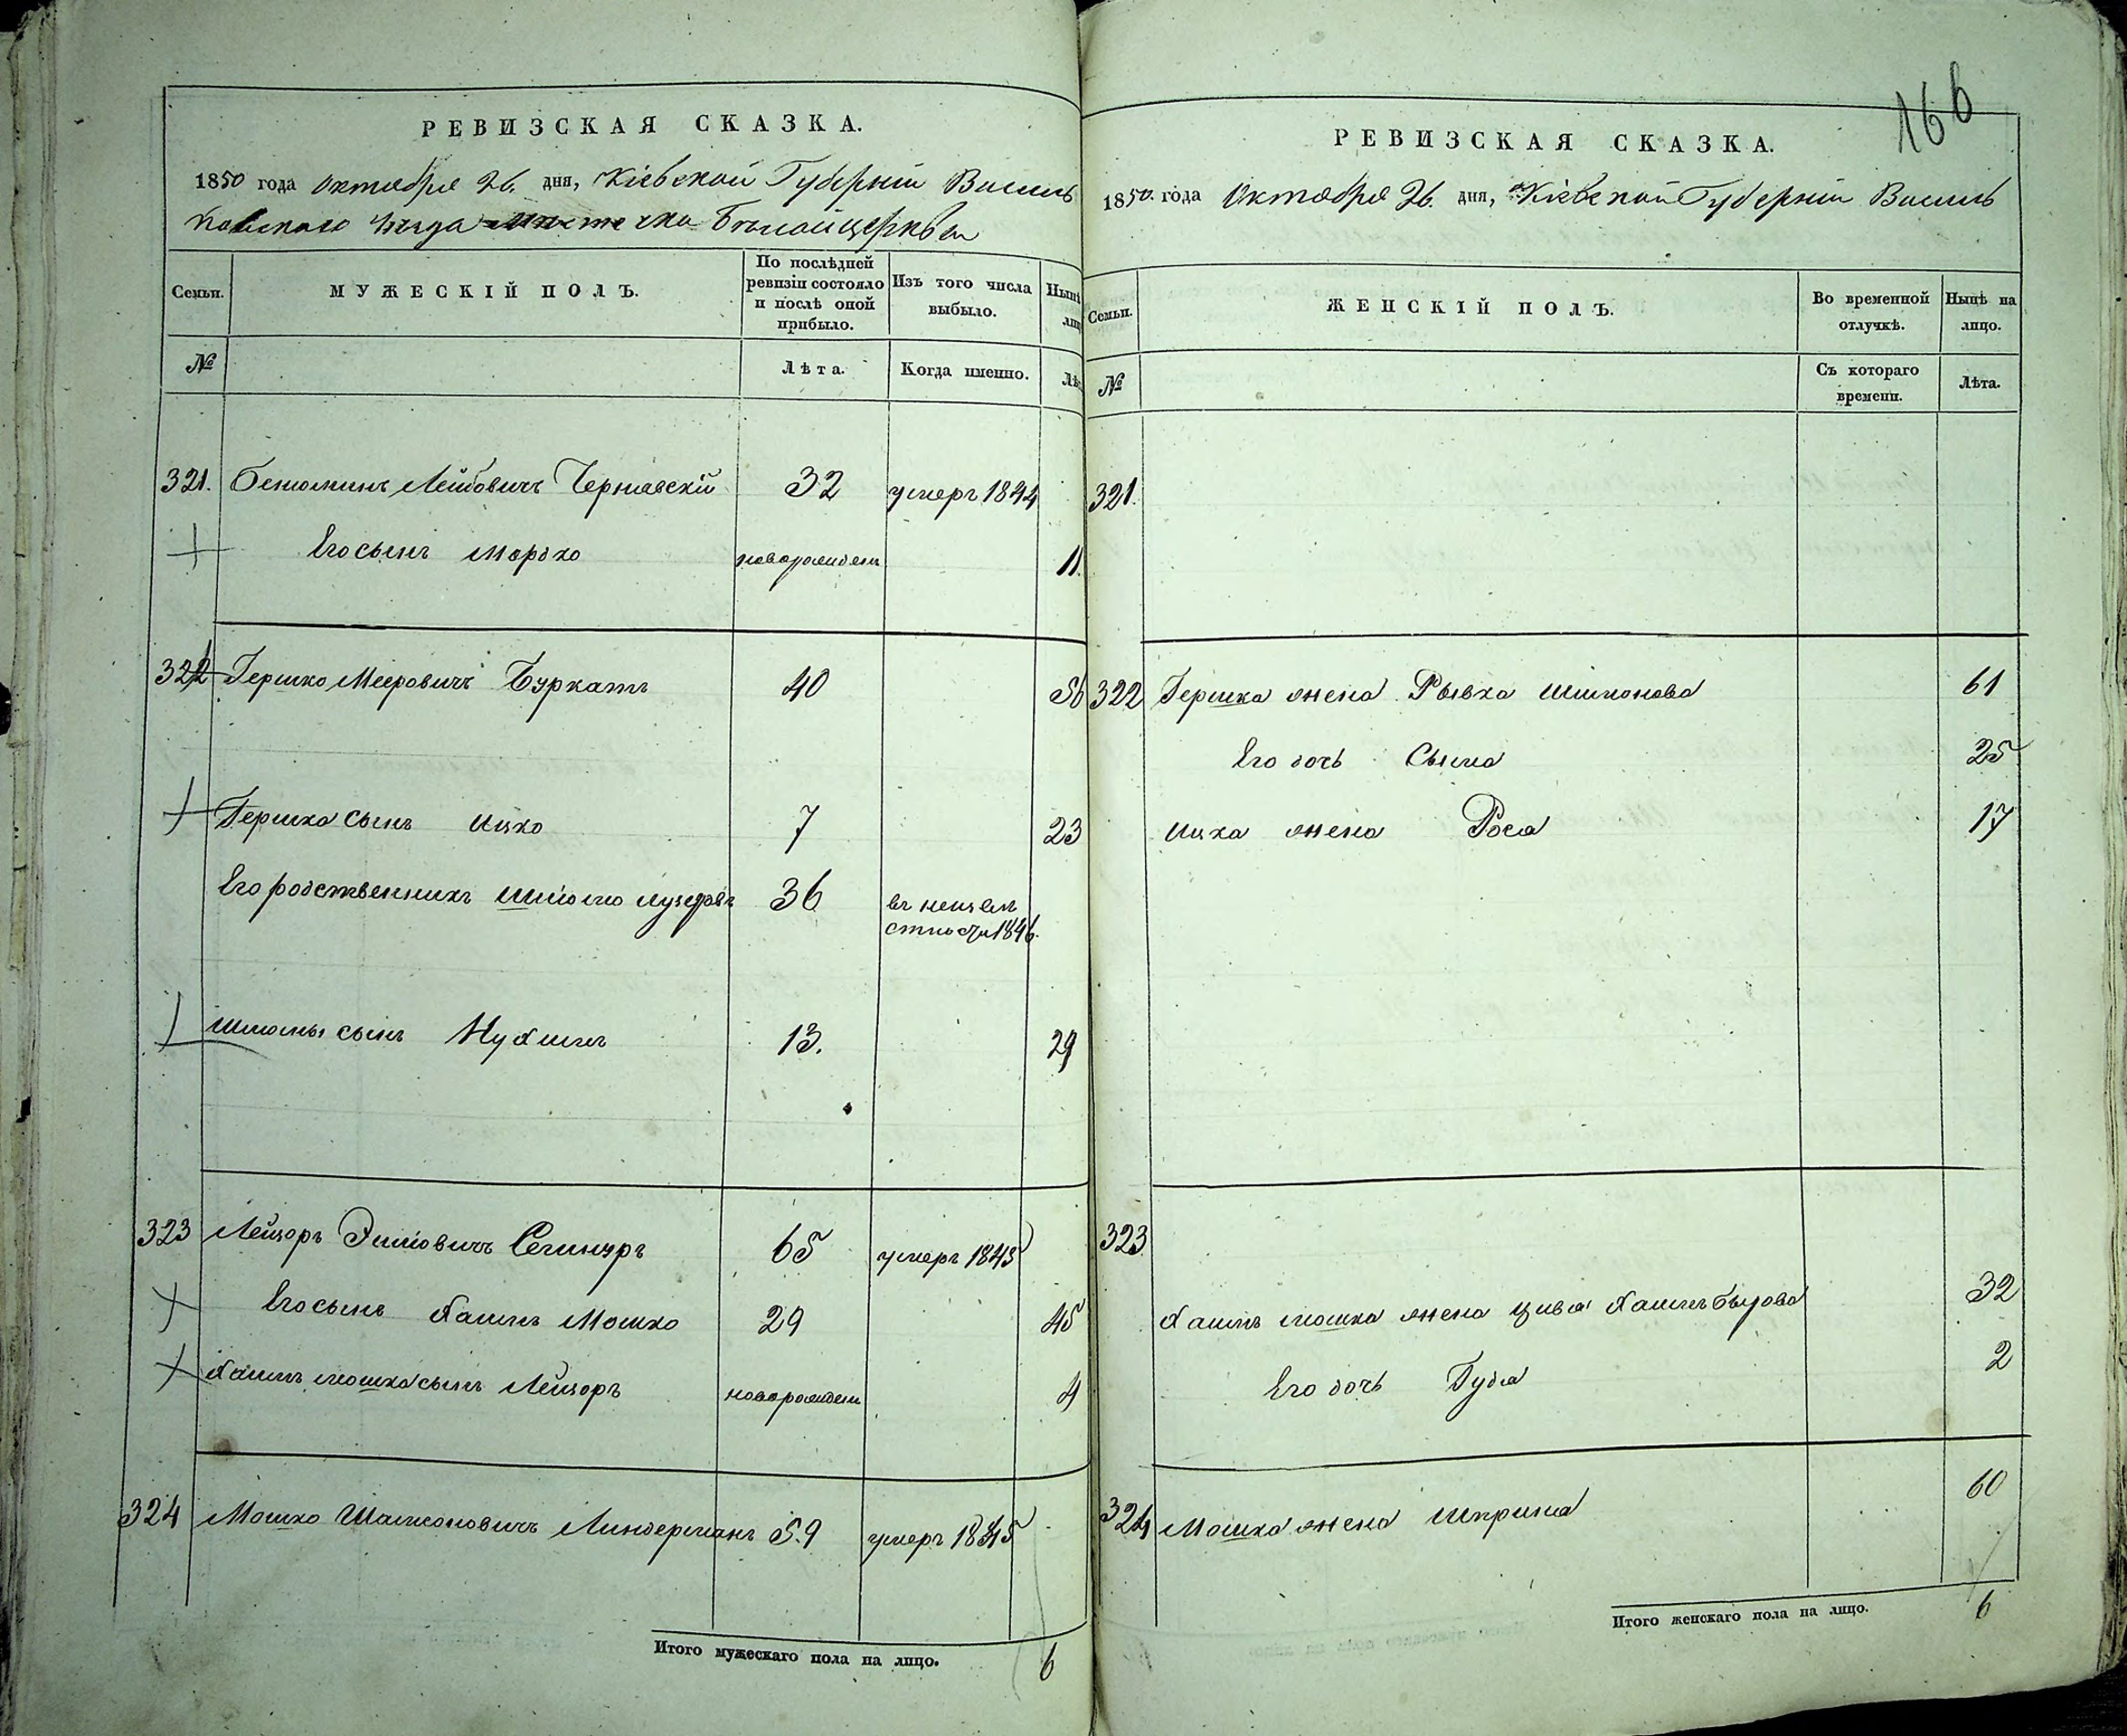 166
РЕВИЗСКАЯ СКАЗКА.
1850 года Октября 26. дня, Кіевской Губерніи Василь
ковскаго Уѣзда мѣстечка Бѣлойцеркви
Семьи.
МУЖЕСКІЙ ПОЛЪ.
По послѣдней
ревизіи состояло
и послѣ оной
прибыло.
Изъ того числа
выбыло.
Нынѣ
лицо
№
Лѣта.
Когда именно.
Лѣт
321. Бенюминъ Лейбовичъ Чернявскій 32 умеръ 1844
Его сынъ Мордко новорожден 11.
322 Гершко Мееровичъ Буркатъ 40 56
Гершка сынъ Ицко 7 23
Его родственникъ Шліома 36 въ неизвѣ
стности 1846.
Шліомы сынъ Нухимъ 13. 29
323 Лейзоръ Эліовичъ 65 умеръ 1845
Его сынъ Хаимъ Мошко 29 45
Хаимъ мошка сынъ Лейзоръ новорожден 4
324 Мошко Шамсоновичъ Линдерманъ 59 умеръ 1845
Итого мужескаго пола на лицо. 6
РЕВИЗСКАЯ СКАЗКА.
1850. года Октября 26. дня, Кіевской Губерніи Василь
Семьи.
ЖЕНСКІЙ ПОЛЪ.
Во временной
отлучкѣ.
Нынѣ на
лицо.
№
Съ котораго
времени.
Лѣта.
321.
322 Гершка жена Рывка Шимонова 61
Его дочь Сыма 25
Ицка жена Роса 17
323
Хаимъ мошка жена Цивя 32
Его дочь Гудя 2
324 Мошка жена Шпринa 60
Итого женскаго пола на лицо. 6